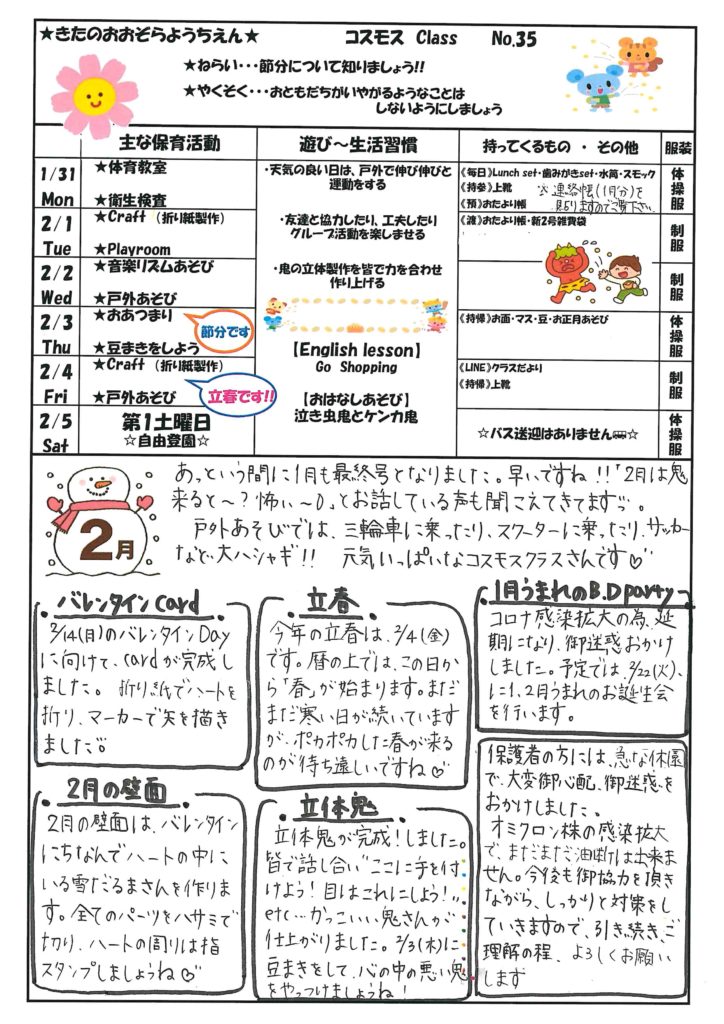 ★きたのおおぞらようちえん★ コスモス Class No.35
★ねらい・・・節分について知りましょう!!
★やくそく・・・おともだちがいやがるようなことは
しないようにしましょう
主な保育活動 遊び～生活習慣 持ってくるもの ・ その他 服装
1/31
Mon
★体育教室
★衛生検査
2/1
Tue
★Craft （折り紙製作）
★Playroom
2/2
Wed
★音楽リズムあそび
★戸外あそび
2/3
Thu
★おあつまり
★豆まきをしよう
節分です
2/4
Fri
★Craft （折り紙製作）
★戸外あそび
立春です!!
2/5
Sat
第1土曜日
☆自由登園☆
・天気の良い日は、戸外で伸び伸びと
運動をする
・友達と協力したり、工夫したり
グループ活動を楽しませる
・鬼の立体製作を皆で力を合わせ
作り上げる
【English lesson】
Go Shopping
【おはなしあそび】
泣き虫鬼とケンカ鬼
《毎日》Lunch set・歯みがきset・水筒・スモック
《持参》上靴 ※連絡帳(1月分)を
《預》おたより帳 見りますのでご覧下さい
《渡》おたより帳・新2号雑費袋
《持帰》お面・マス・豆・お正月あそび
《LINE》クラスだより
《持帰》上靴
☆バス送迎はありません☆
体操服
制服
制服
体操服
制服
体操服
2月
あっという間に1月も最終号となりました。早いですね!!「2月は鬼
来ると～?怖い～」とお話している声も聞こえてきてますっ。
戸外あそびでは、三輪車に乗ったり、スクーターに乗ったり、サッカー
など、大ハシャギ!! 元気いっぱいなコスモスクラスさんです♡
バレンタインcard
2/14(月)のバレンタインDay
に向けて、cardが完成し
ました。折り紙でハートを
折り、マーカーで矢を描き
ました
立春
今年の立春は、2/4(金)
です。暦の上では、この日か
ら「春」が始まります。まだ
まだ寒い日が続いています
が、ポカポカした春が来る
のが待ち遠しいですね♡
1月うまれのB.D party
コロナ感染拡大の為、延
期になり、御迷惑おかけ
しました。予定では、2/22(火)、
に1、2月うまれのお誕生会
を行います。
2月の壁面
2月の壁面は、バレンタイン
にちなんでハートの中に
いる雪だるまさんを作りま
す。全てのパーツをハサミで
切り、ハートの周りは指
スタンプしましょうね♡
立体鬼
立体鬼が完成!しました。
皆で話し合い"ここに手を付
けよう!目はこれにしよう!"
etc…かっこいい鬼さんが
仕上がりました。2/3(木)に
豆まきをして、心の中の悪い鬼
をやっつけましょうね!
保護者の方には、急な休園
で、大変御心配、御迷惑を
おかけしました。
オミクロン株の感染拡大
で、まだまだ油断は出来ま
せん。今後も御協力を頂き
ながら、しっかりと対策をし
ていきますので、引き続き、ご
理解の程、よろしくお願い
します